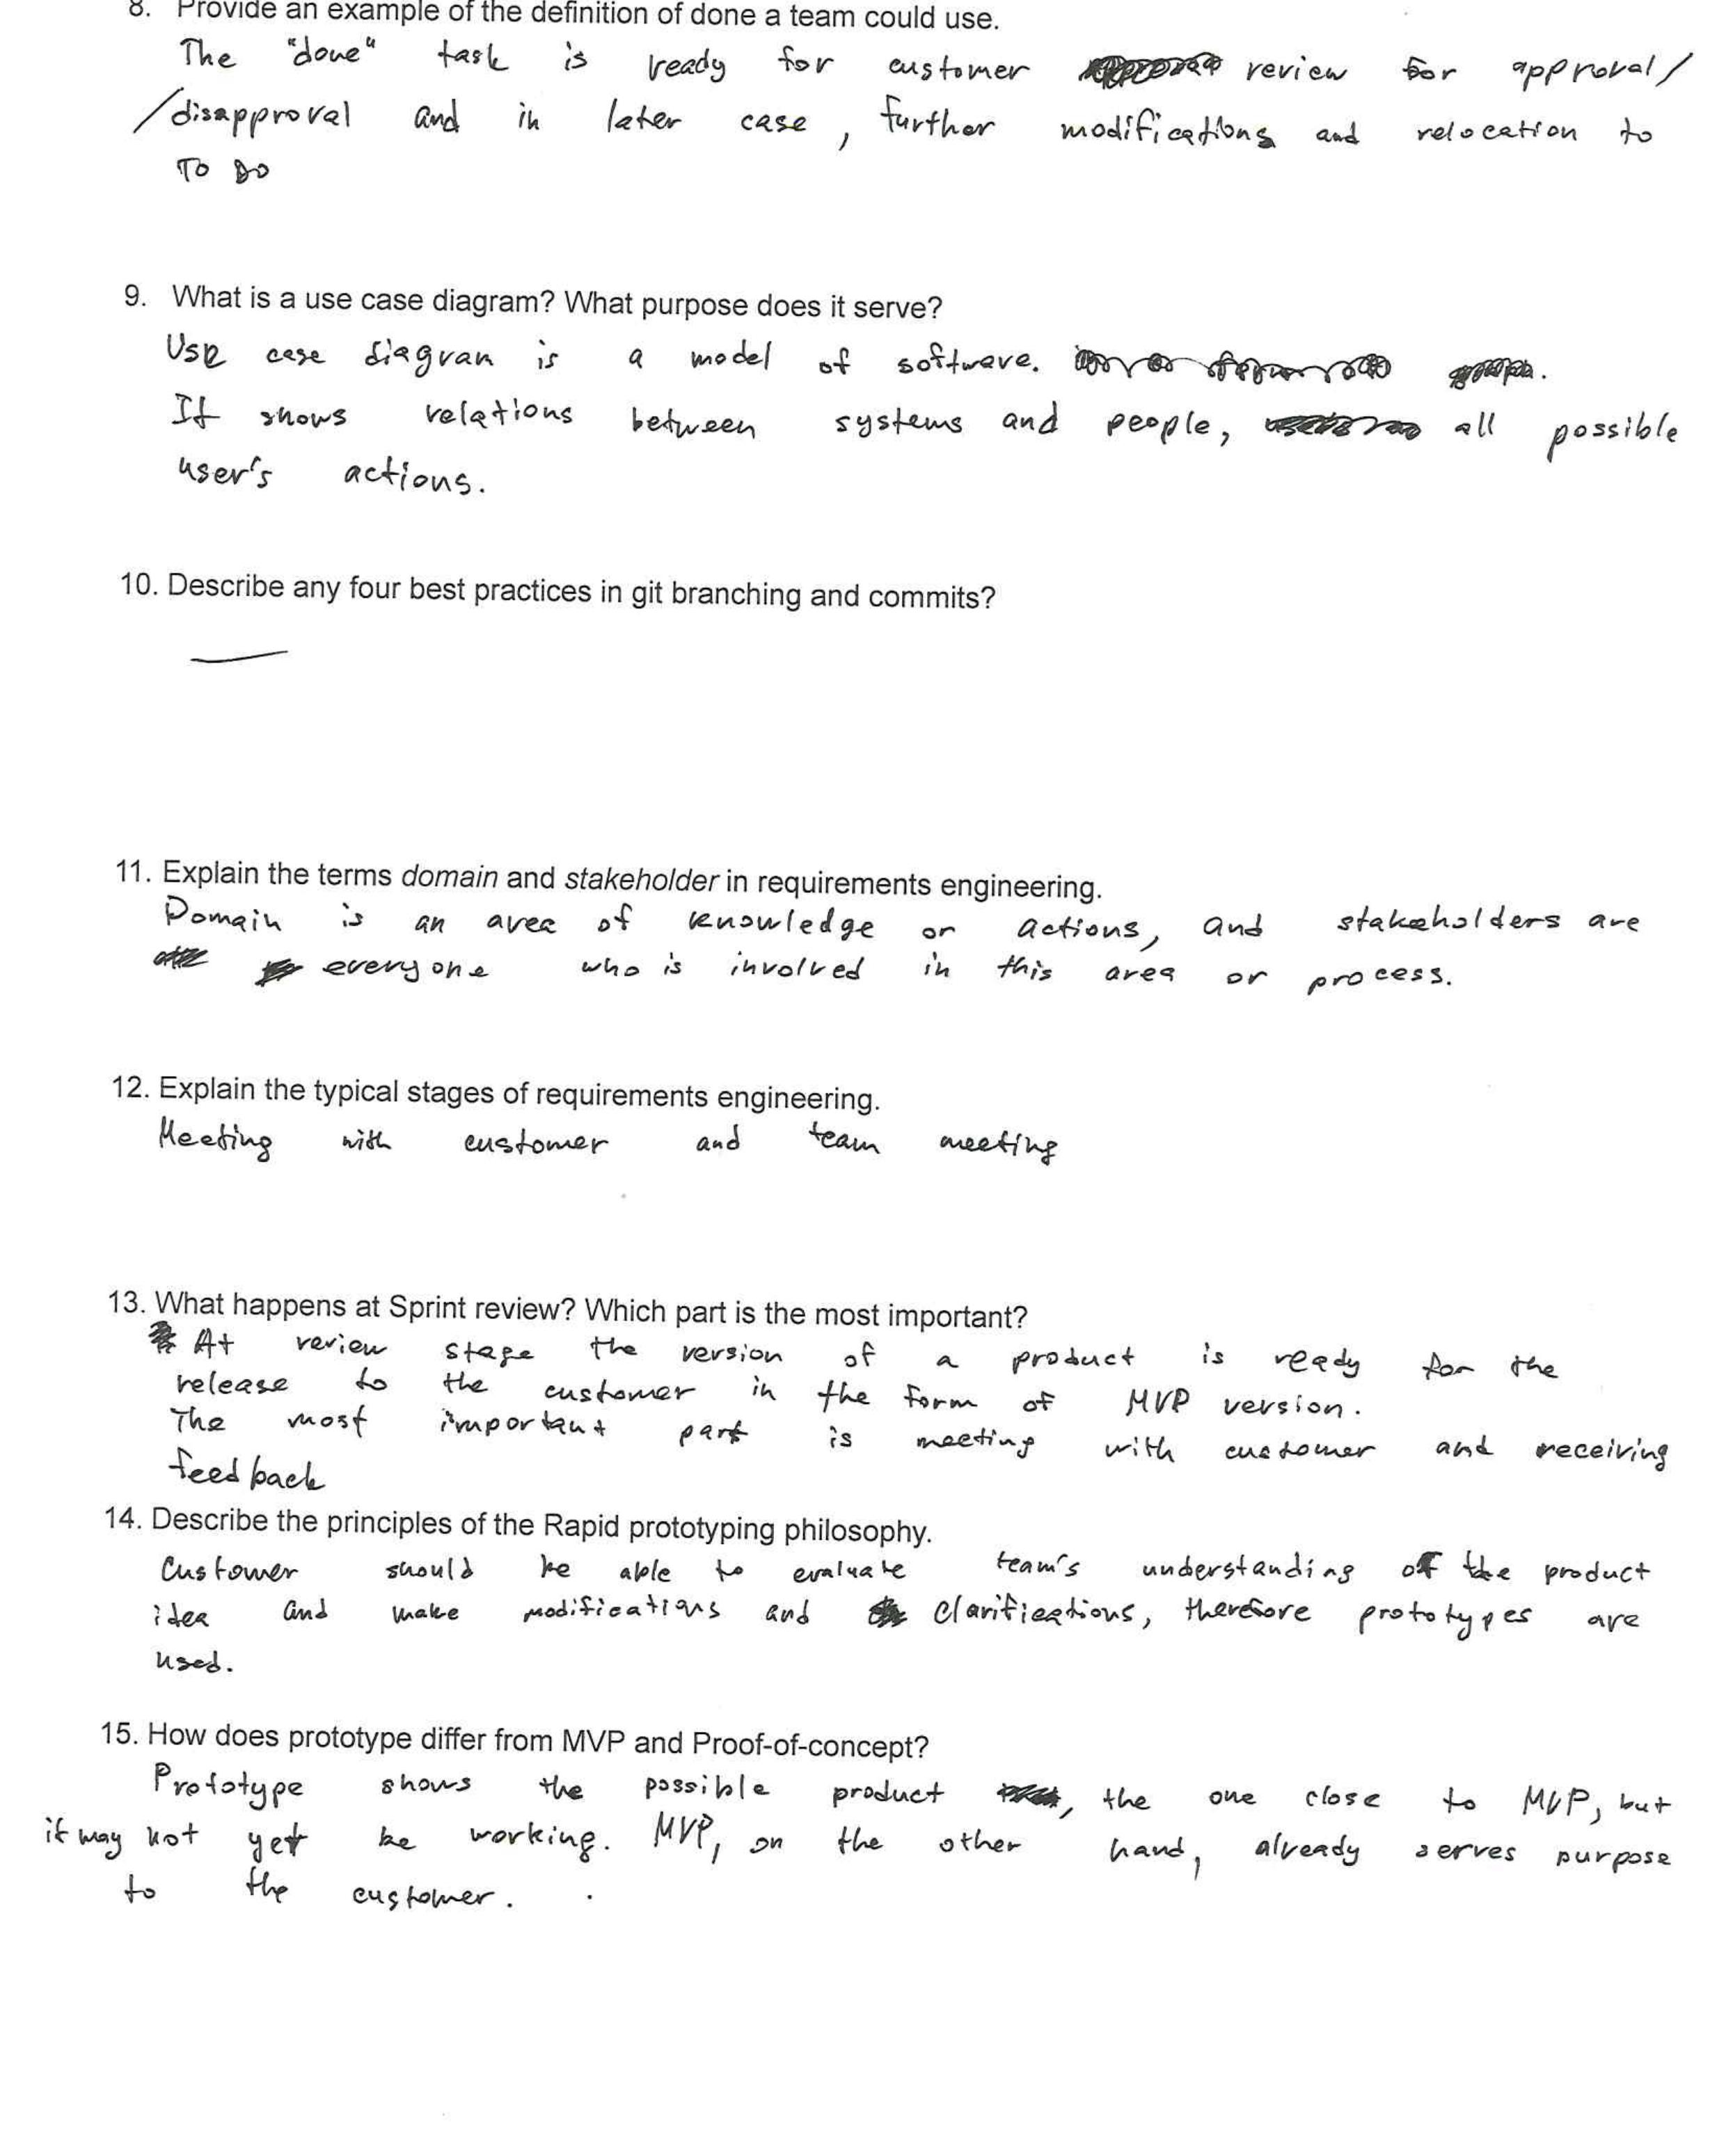 8. Provide an example of the definition of done a team could use.
The "done" task is ready for customer review for approval/
/disapproval and in later case, further modifications and relocation to
To Do
9. What is a use case diagram? What purpose does it serve?
Use case diagram is a model of software.
It shows relations between systems and people, all possible
user's actions.
10. Describe any four best practices in git branching and commits?
—
11. Explain the terms domain and stakeholder in requirements engineering.
Domain is an area of knowledge or actions, and stakeholders are
everyone who is involved in this area or process.
12. Explain the typical stages of requirements engineering.
Meeting with customer and team meeting
13. What happens at Sprint review? Which part is the most important?
At review stage the version of a product is ready for the
release to the customer in the form of MVP version.
The most important part is meeting with customer and receiving
feedback
14. Describe the principles of the Rapid prototyping philosophy.
Customer should be able to evaluate team's understanding of the product
idea and make modifications and clarifications, therefore prototypes are
used.
15. How does prototype differ from MVP and Proof-of-concept?
Prototype shows the possible product, the one close to MVP, but
it may not yet be working. MVP, on the other hand, already serves purpose
to the customer.